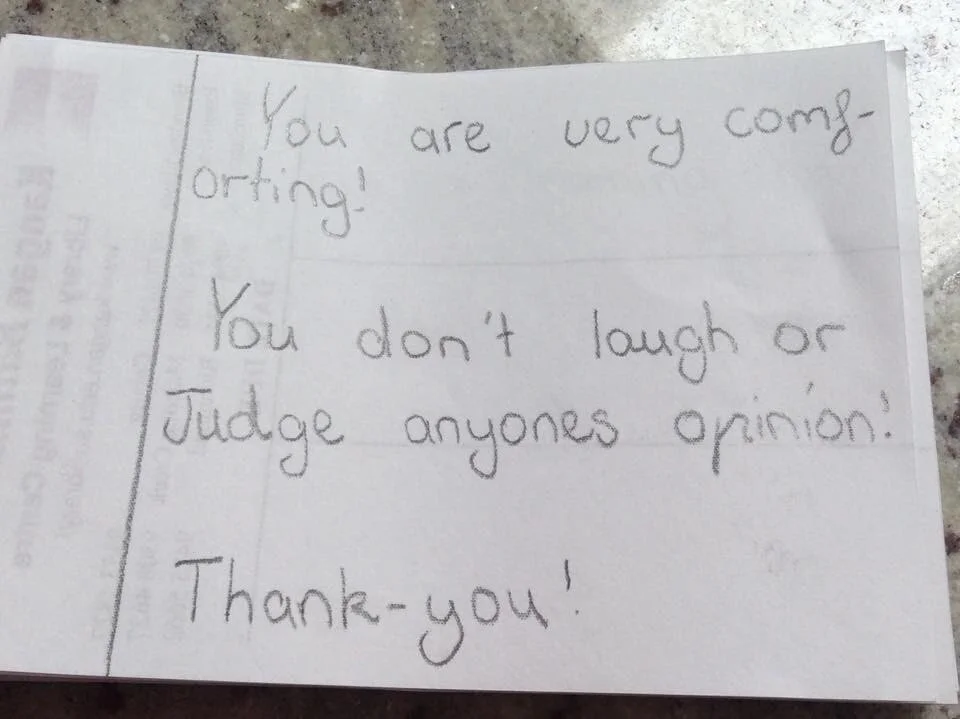 You are very comf-
orting!
You don't laugh or
Judge anyones opinion!
Thank-you!